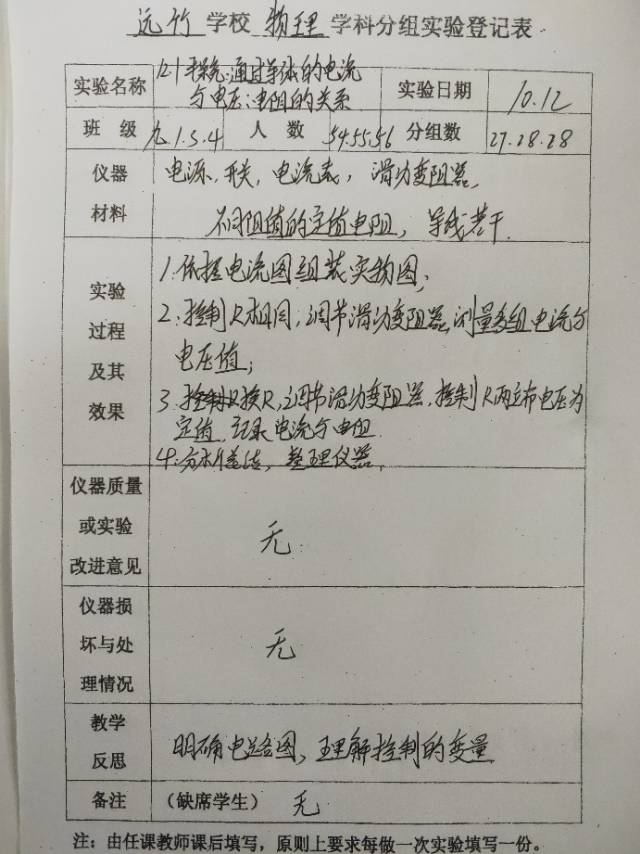 远竹 学校 物理 学科分组实验登记表
实验名称 12.1 探究:通过导体的电流
与电压:电阻的关系 实验日期 10.12
班 级 九 1.3.4 人 数 54.55.56 分组数 27.28.28
仪器 电源、开关, 电流表, 滑动变阻器,
材料 不同阻值的定值电阻, 导线若干.
1. 依据电流图组装实物图,
实验
2. 控制R相同, 调节滑动变阻器,测量多组电流与
过程
电压值;
及其
3. 换R,调节滑动变阻器,控制R两立布电压为
效果
定值,记录电流与电阻.
4. 整理仪器,
仪器质量
或实验 无
改进意见
仪器损
坏与处 无
理情况
教学
反思 明确电路图, 理解控制的变量
备注 (缺席学生) 无
注: 由任课教师课后填写, 原则上要求每做一次实验填写一份。